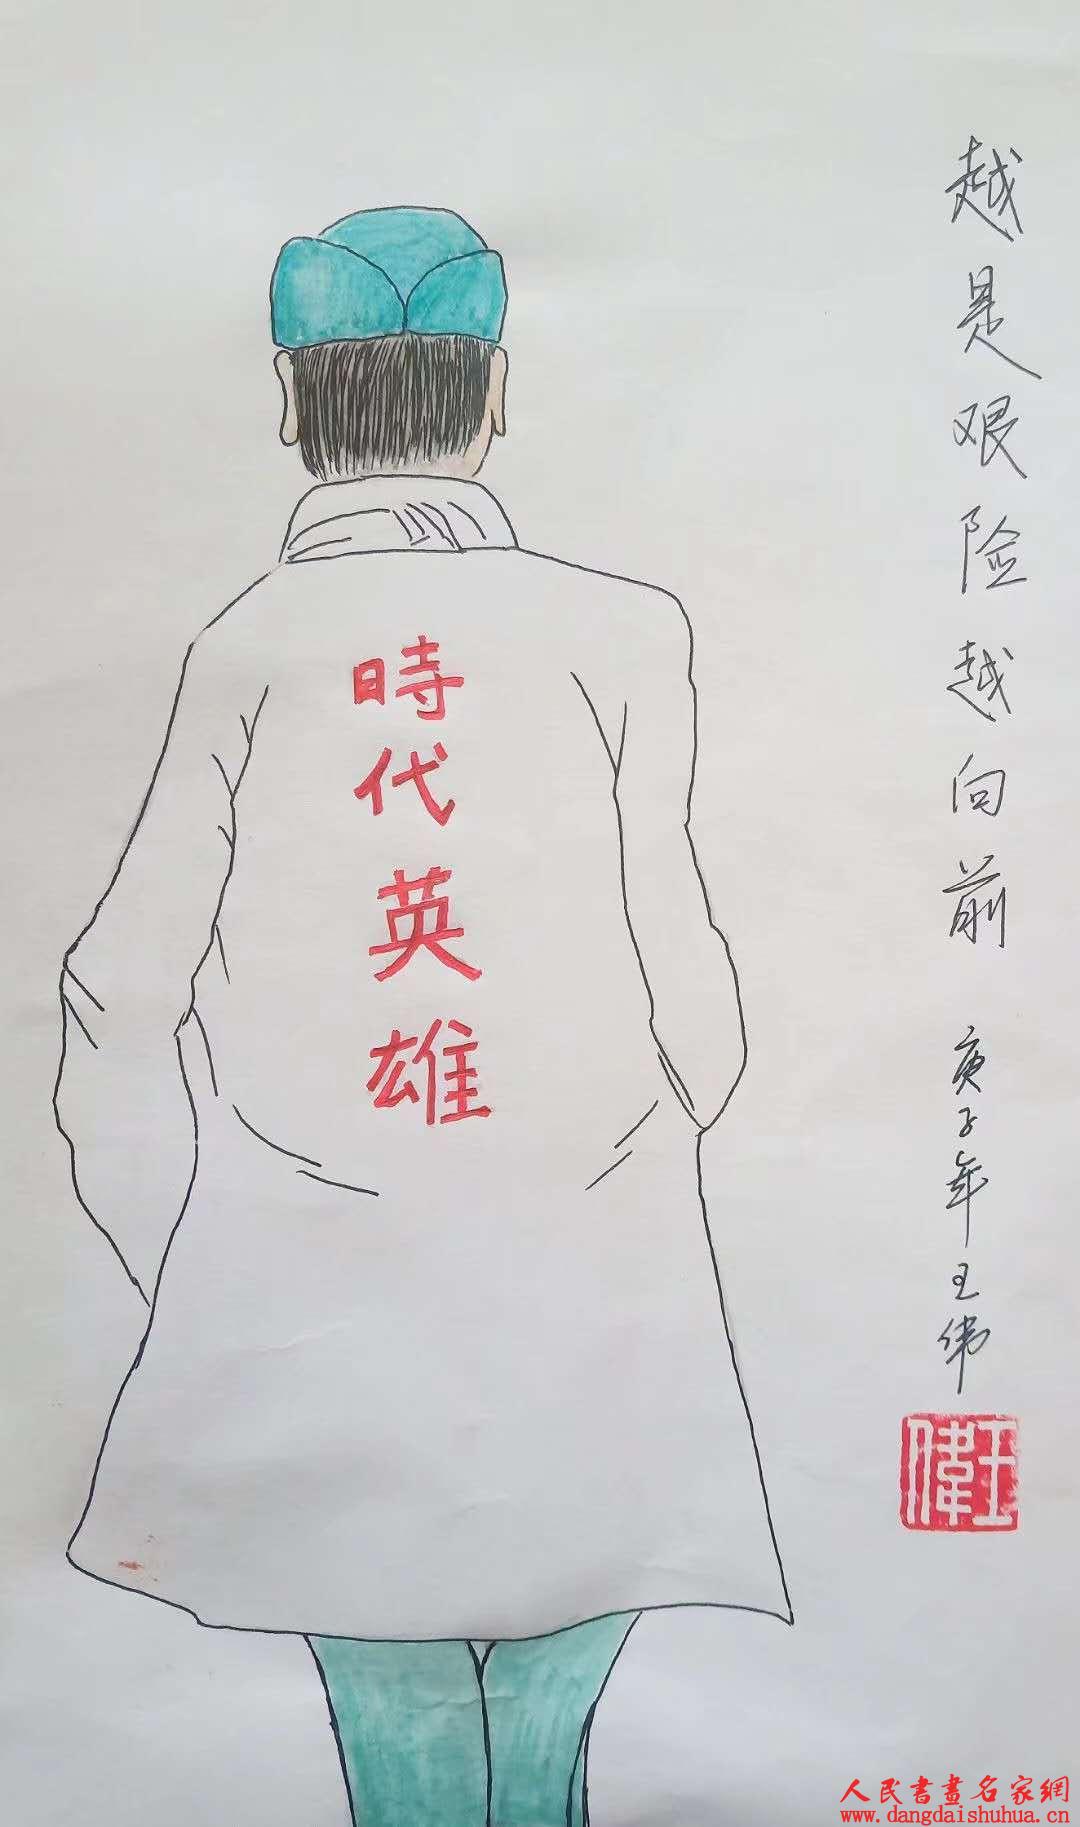 越是艰险越向前 庚子年王伟
時代英雄
王偉
人民書畫名家網
www.dangdaishuhua.com.cn